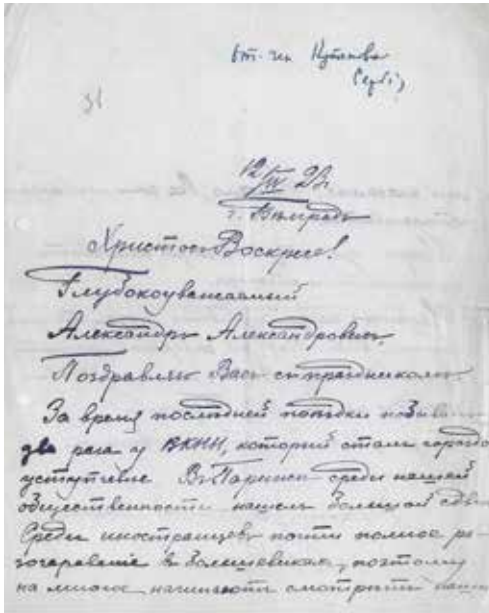 От. ген Кутепова
31
12/IV 23г.
г. Бѣлградъ
Христосъ Воскресе!
Глубокоуважаемый
Александръ Александровичъ,
Поздравляю Васъ съ праздникомъ.
За время послѣдней поѣздки
два раза у ВКНН, который сталъ гораздо
уступчивѣе Въ Парижѣ среди нашей
общественности нашелъ большой сдви
Среди иностранцевъ почти полное ра-
зочарованiе в большевикахъ, поэтому
на многое начинаютъ смотрѣть наши